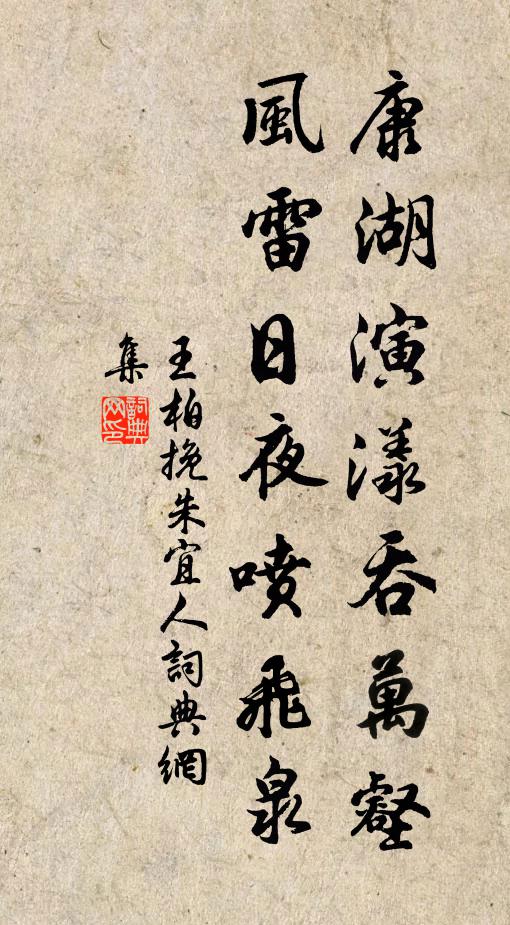 康湖演漾吞萬壑
風雷日夜噴飛泉
王柏挽朱宜人詞典網
集
詞典
網印